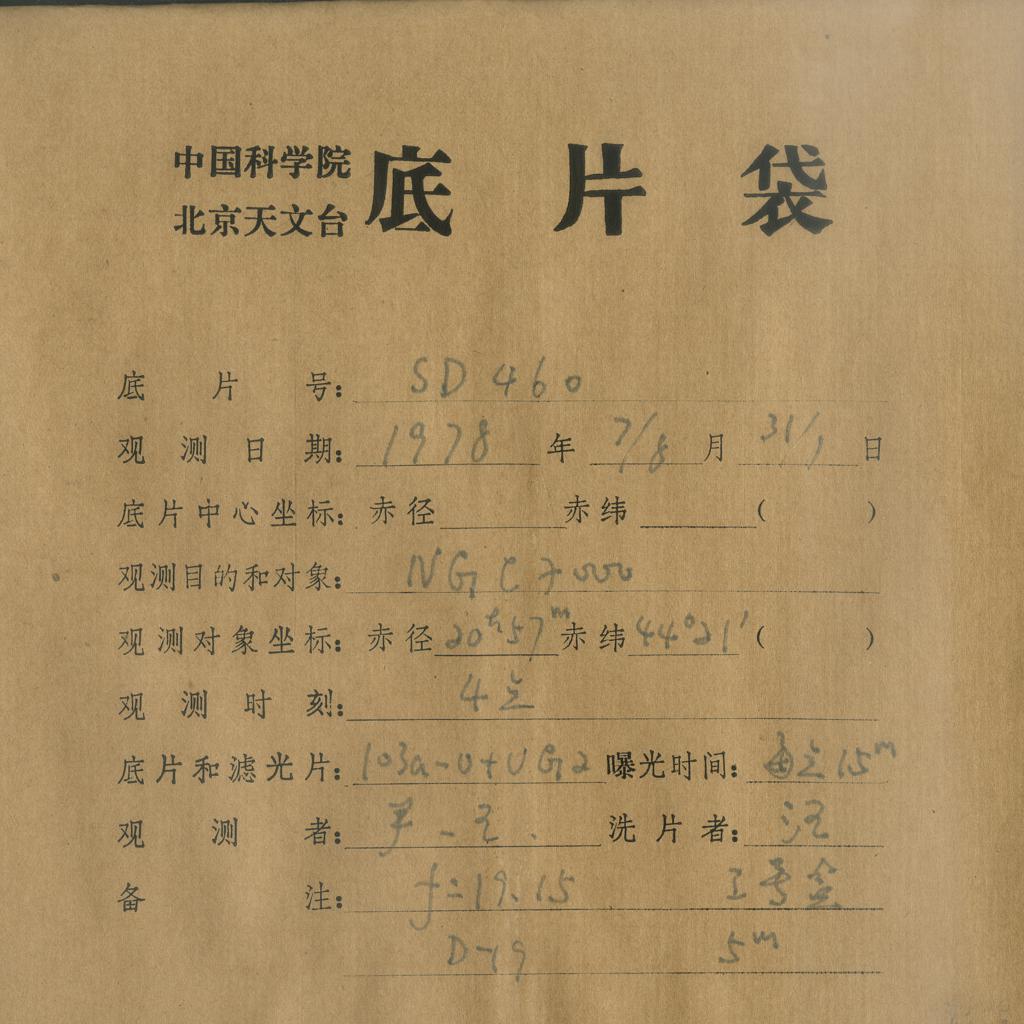 中国科学院
北京天文台
底片袋
底片号: SD 460
观测日期: 1978 年 7/8 月 31/1 日
底片中心坐标: 赤径 赤纬 ( )
观测目的和对象: NGC 7000
观测对象坐标: 赤径 20h57m 赤纬 44°21′ ( )
观测时刻: 4
底片和滤光片: 103a-O+UG2 曝光时间: 15m
观测者: 洗片者:
备注: f=19.15 号盒
D-19 5m